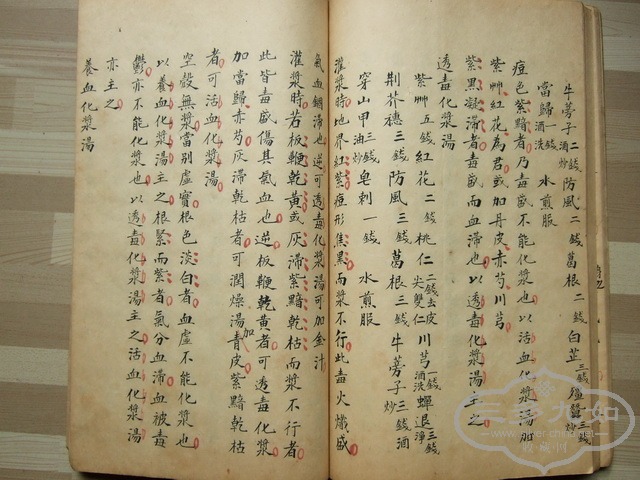 牛蒡子二錢酒炒防風二錢葛根二錢白芷三錢殭蠶三錢炒
當歸一錢酒洗 水煎服
痘色紫黯者乃毒盛不能化漿也以活血化漿湯加
紫艸紅花為君或加丹皮赤芍川芎
紫黑凝滯者毒盛而血滯也以透毒化漿湯主之
透毒化漿湯
紫艸五錢紅花二錢桃仁二錢去皮尖雙仁川芎一錢酒洗蟬退三錢淨
荆芥穗三錢防風三錢葛根三錢牛蒡子三錢酒炒
穿山甲三錢油炒皂刺一錢 水煎服
灌漿時地界紅紫痘形焦黑而漿不行此毒火熾盛
氣血錮滯也逆可透毒化漿湯可加金汁
灌漿時若板鞕乾黃或灰滯紫黯乾枯而漿不行者
此皆毒盛傷其氣血也逆板鞕乾黃者可透毒化漿
加當歸赤芍灰滯乾枯者可潤燥湯加青皮紫黯乾枯
者可活血化漿湯
空殼無漿當別虛實根色淡白者血虛不能化漿也
以養血化漿湯主之根緊而紫者氣分血滯血被毒
鬱亦不能化漿也以透毒化漿湯主之活血化漿湯
亦主之
養血化漿湯
三多九如
www.cper.cning.net
收藏網